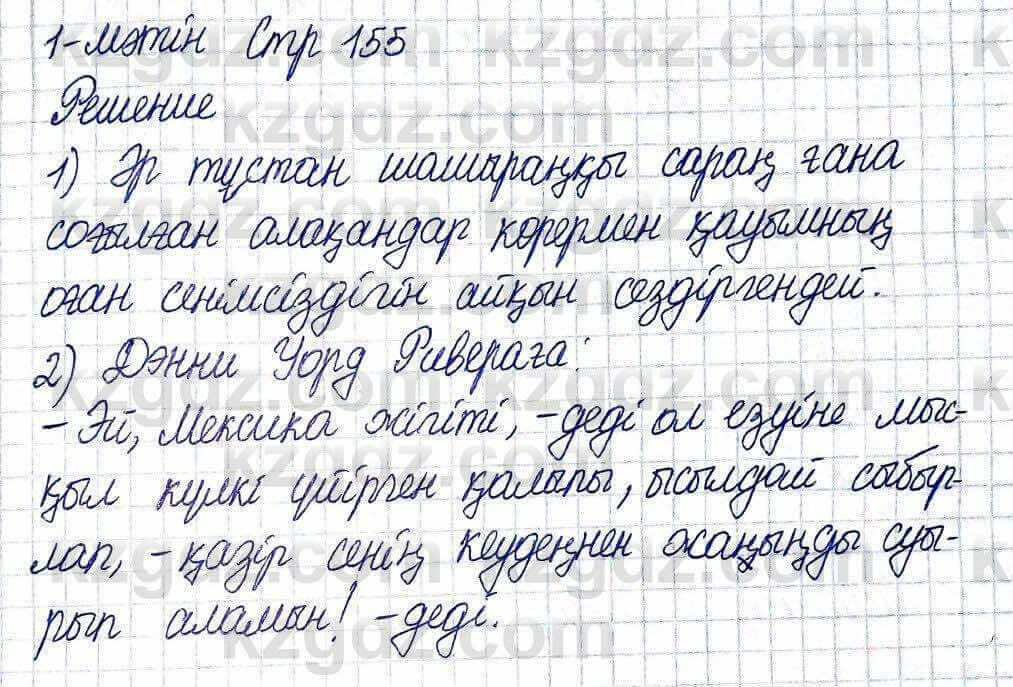 1-мәтін Стр 155
Решение
1) Әр тұстан шашыраңқы сараң ғана
соғылған алақандар көрермен қауымның
оған сенімсіздігін айқын сездіргендей.
2) Дэнни Уорд Ривераға:
- Эй, Мексика жігіті, - деді ол езуіне мыс-
қыл күлкі үйірген қалыпы, ысылдай сыбыр-
лап, - қазір сенің кеудеңнен жаңыңды суы-
рып аламын! - деді.